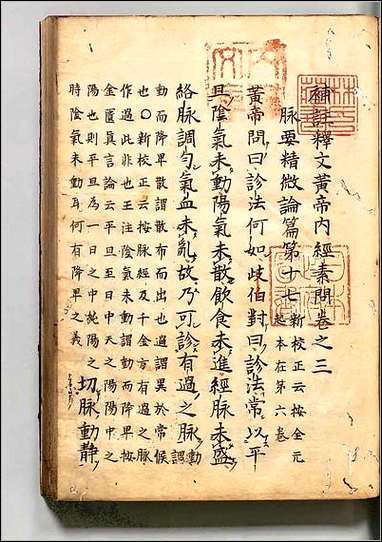 補註釋文黃帝內經素問卷之三
脉要精微論篇第十七 新校正云按全元
起本在第六卷
黃帝問曰診法何如歧伯對曰診法常以平
旦陰氣未動陽氣未散飲食未進經脉未盛
絡脉調勻氣血未亂故乃可診有過之脉 動謂
動而降卑散謂散布而出也過謂異於常候
也○新校正云按脉經及千金方有過之脉
作過此非也王注陰氣未動謂動而降卑按
金匱真言論云平旦至日中天之陽陽中之
陽也則平旦為一日之中純陽之
時陰氣未動耳何有降卑之義 切脉動靜